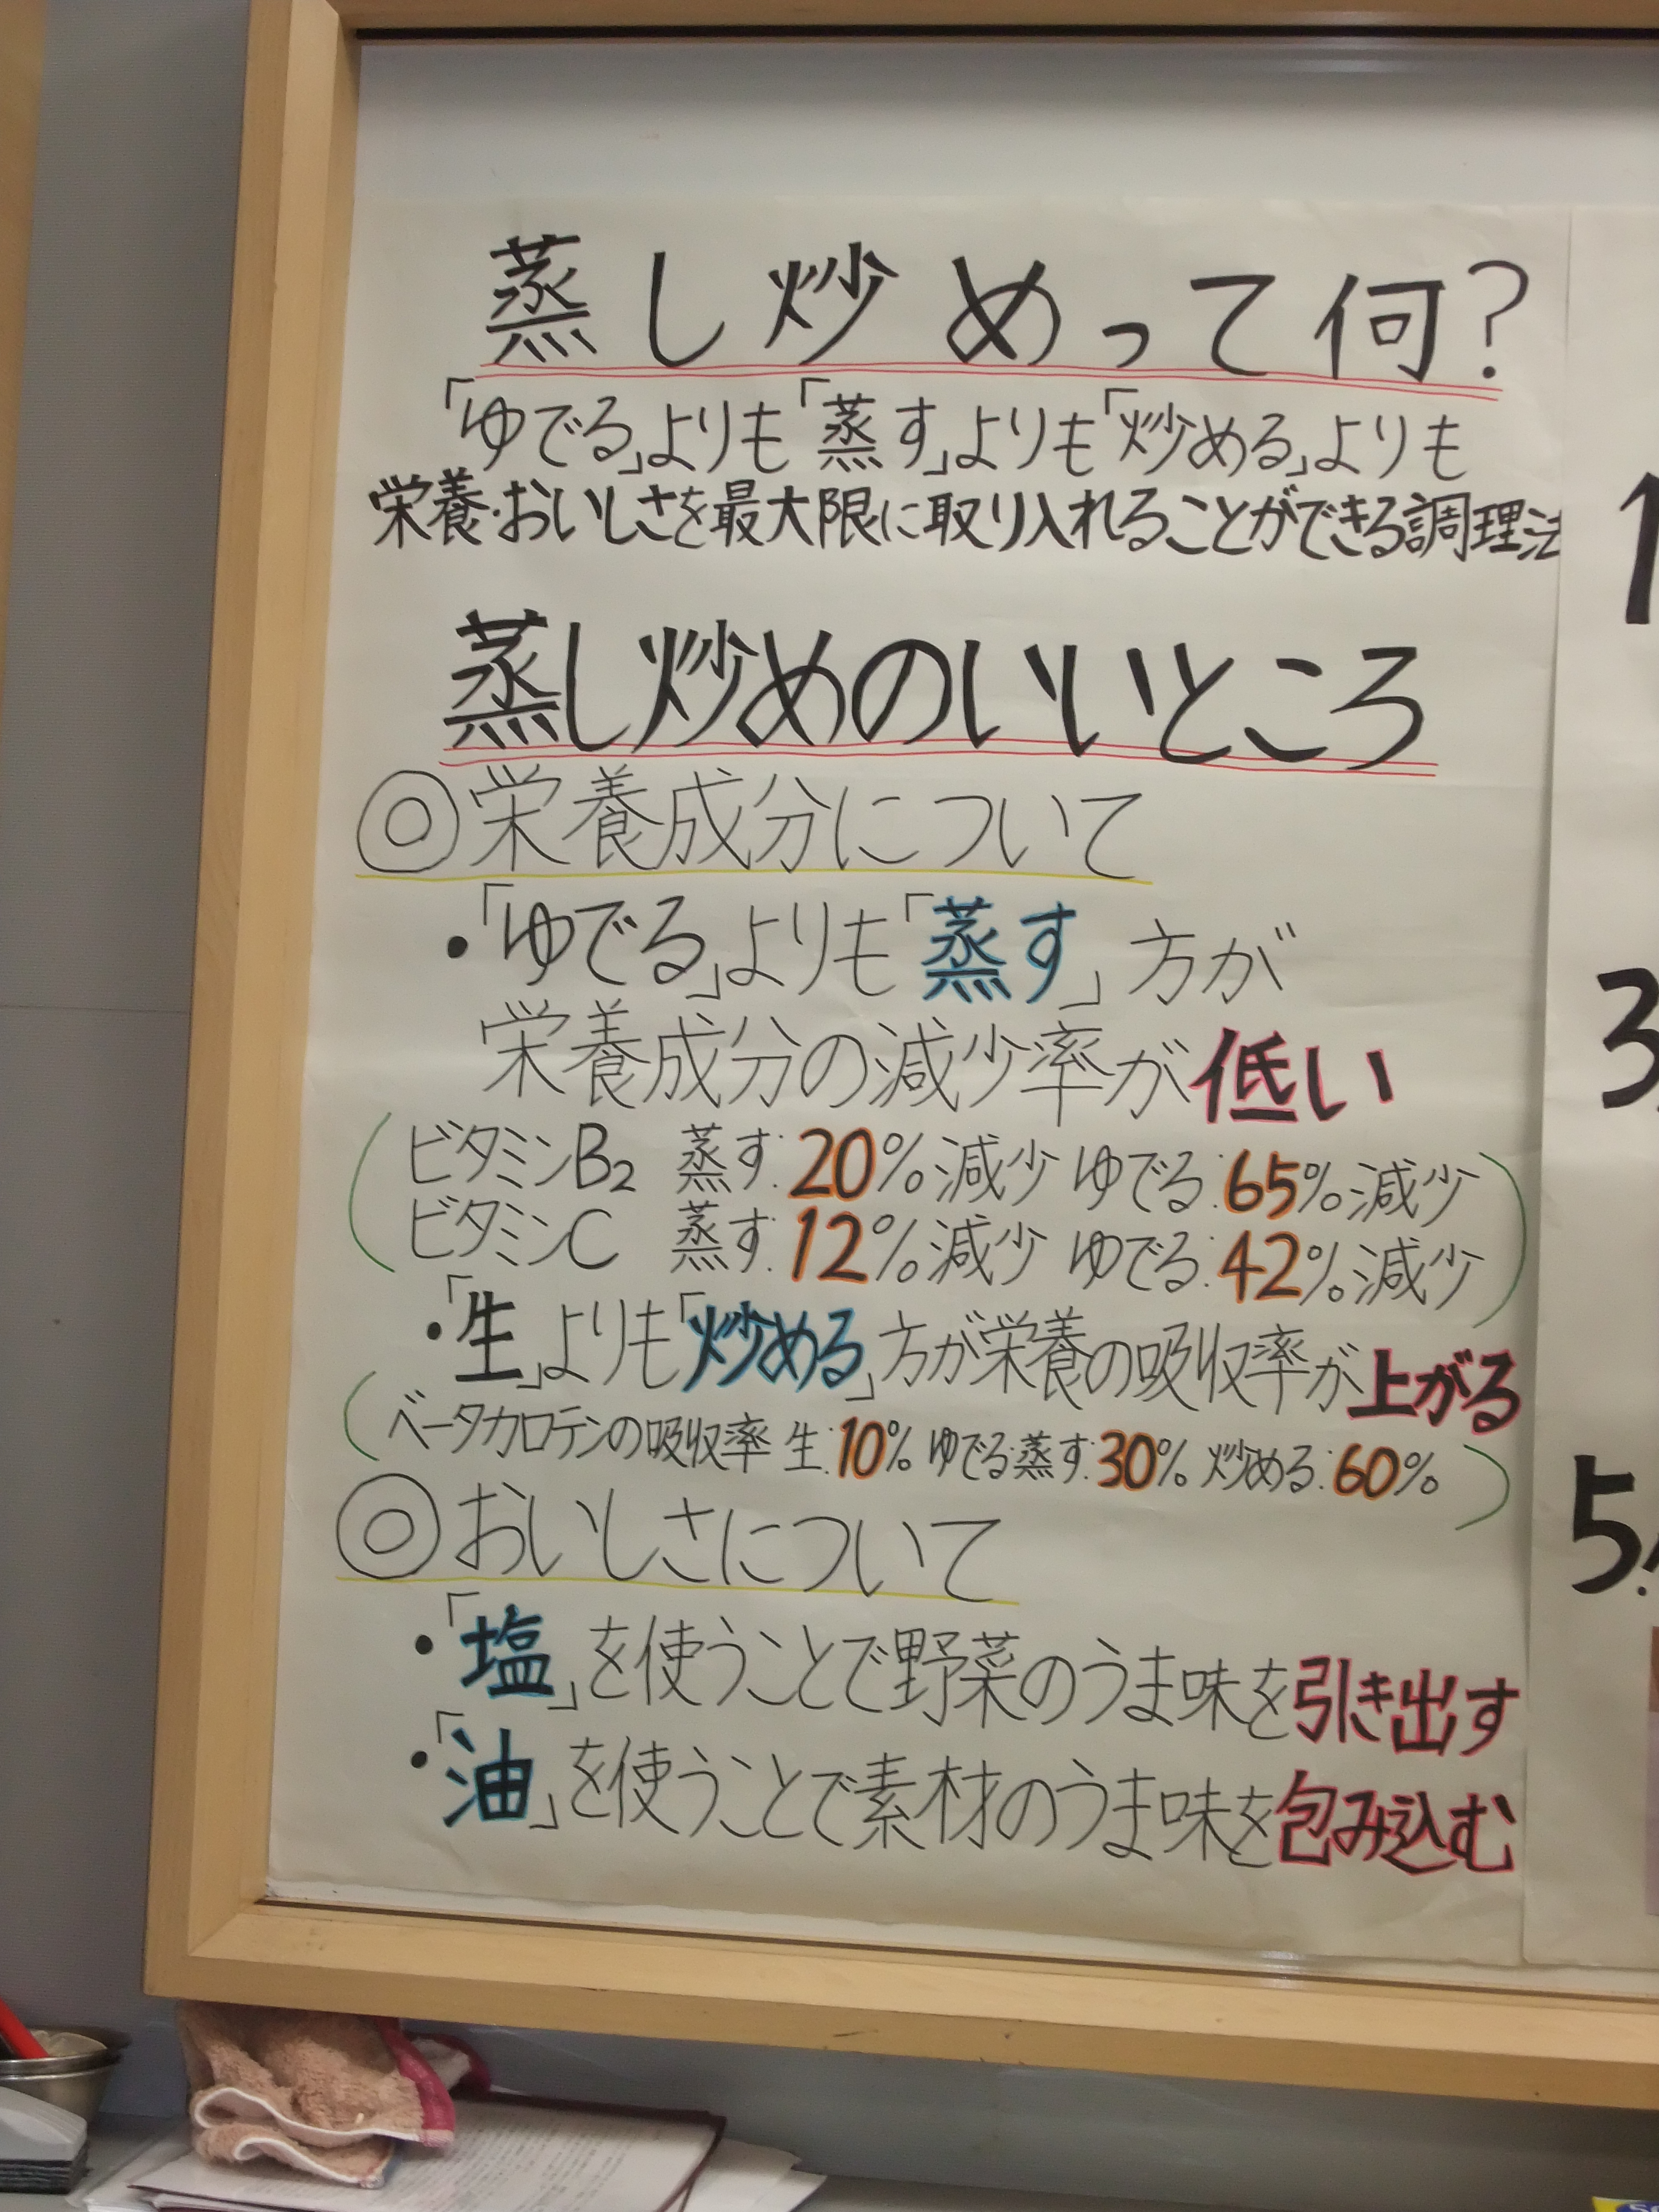 蒸し炒めって何?
「ゆでる」よりも「蒸す」よりも「炒める」よりも
栄養・おいしさを最大限に取り入れることができる調理法
蒸し炒めのいいところ
◎栄養成分について
・「ゆでる」よりも「蒸す」方が
栄養成分の減少率が低い
(ビタミンB2 蒸す:20%減少 ゆでる:65%減少
ビタミンC 蒸す:12%減少 ゆでる:42%減少)
・「生」よりも「炒める」方が栄養の吸収率が上がる
(ベータカロテンの吸収率 生:10% ゆでる・蒸す:30% 炒める:60%)
◎おいしさについて
・「塩」を使うことで野菜のうま味を引き出す
・「油」を使うことで素材のうま味を包み込む
1
3.
5.